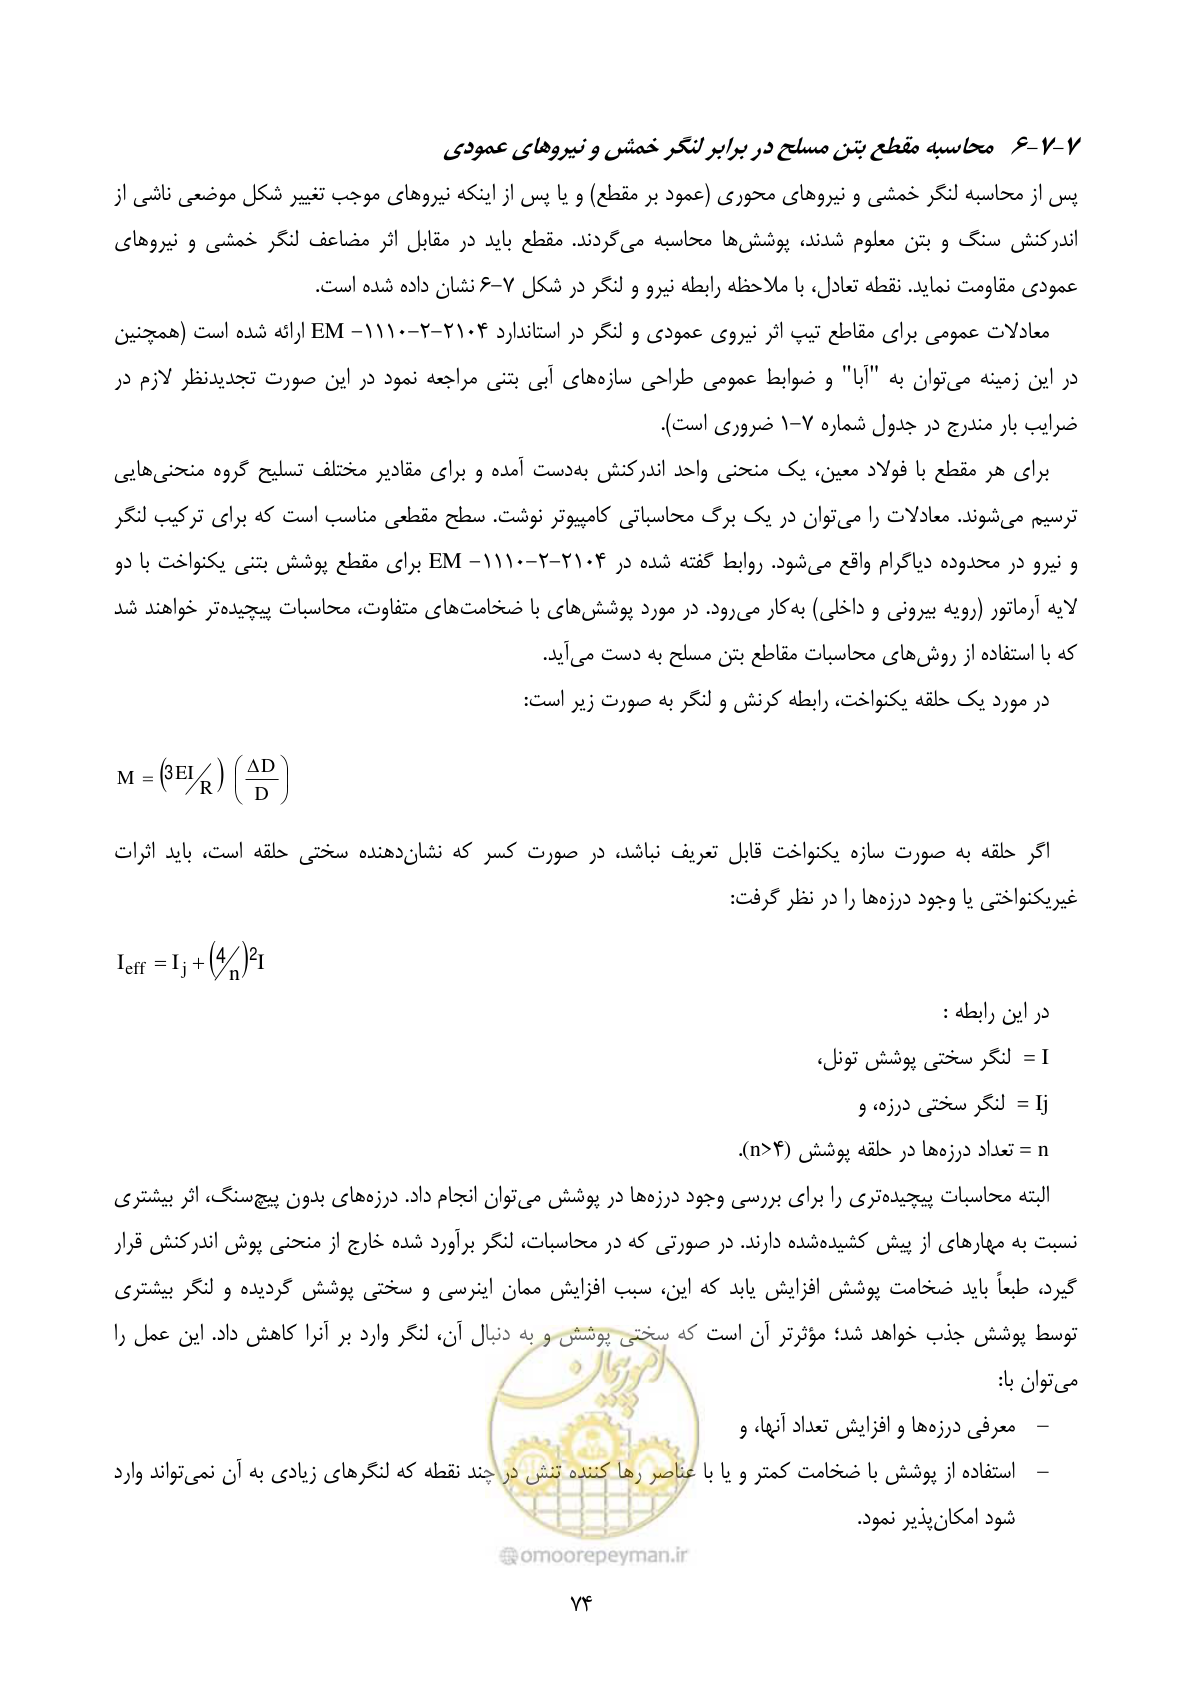 ۷-۷-۶ محاسبه مقطع بتن مسلح در برابر لنگر خمش و نیروهای عمودی
پس از محاسبه لنگر خمشی و نیروهای محوری (عمود بر مقطع) و یا پس از اینکه نیروهای موجب تغییر شکل موضعی ناشی از
اندرکنش سنگ و بتن معلوم شدند، پوشش‌ها محاسبه می‌گردند. مقطع باید در مقابل اثر مضاعف لنگر خمشی و نیروهای
عمودی مقاومت نماید. نقطه تعادل، با ملاحظه رابطه نیرو و لنگر در شکل ۷-۶ نشان داده شده است.
معادلات عمومی برای مقاطع تیپ اثر نیروی عمودی و لنگر در استاندارد EM -۱۱۱۰-۲-۲۱۰۴ ارائه شده است (همچنین
در این زمینه می‌توان به "آبا" و ضوابط عمومی طراحی سازه‌های آبی بتنی مراجعه نمود در این صورت تجدیدنظر لازم در
ضرایب بار مندرج در جدول شماره ۷-۱ ضروری است).
برای هر مقطع با فولاد معین، یک منحنی واحد اندرکنش به‌دست آمده و برای مقادیر مختلف تسلیح گروه منحنی‌هایی
ترسیم می‌شوند. معادلات را می‌توان در یک برگ محاسباتی کامپیوتر نوشت. سطح مقطعی مناسب است که برای ترکیب لنگر
و نیرو در محدوده دیاگرام واقع می‌شود. روابط گفته شده در EM -۱۱۱۰-۲-۲۱۰۴ برای مقطع پوشش بتنی یکنواخت با دو
لایه آرماتور (رویه بیرونی و داخلی) به‌کار می‌رود. در مورد پوشش‌های با ضخامت‌های متفاوت، محاسبات پیچیده‌تر خواهند شد
که با استفاده از روش‌های محاسبات مقاطع بتن مسلح به دست می‌آید.
در مورد یک حلقه یکنواخت، رابطه کرنش و لنگر به صورت زیر است:
M = (3EI/R) (ΔD/D)
اگر حلقه به صورت سازه یکنواخت قابل تعریف نباشد، در صورت کسر که نشان‌دهنده سختی حلقه است، باید اثرات
غیریکنواختی یا وجود درزه‌ها را در نظر گرفت:
I_eff = I_j + (4/n)²I
در این رابطه :
I = لنگر سختی پوشش تونل،
Ij = لنگر سختی درزه، و
n = تعداد درزه‌ها در حلقه پوشش (n>۴).
البته محاسبات پیچیده‌تری را برای بررسی وجود درزه‌ها در پوشش می‌توان انجام داد. درزه‌های بدون پیچ‌سنگ، اثر بیشتری
نسبت به مهارهای از پیش کشیده‌شده دارند. در صورتی که در محاسبات، لنگر برآورد شده خارج از منحنی پوش اندرکنش قرار
گیرد، طبعاً باید ضخامت پوشش افزایش یابد که این، سبب افزایش ممان اینرسی و سختی پوشش گردیده و لنگر بیشتری
توسط پوشش جذب خواهد شد؛ مؤثرتر آن است که سختی پوشش و به دنبال آن، لنگر وارد بر آنرا کاهش داد. این عمل را
می‌توان با:
– معرفی درزه‌ها و افزایش تعداد آنها، و
– استفاده از پوشش با ضخامت کمتر و یا با عناصر رها کننده تنش در چند نقطه که لنگرهای زیادی به آن نمی‌تواند وارد
شود امکان‌پذیر نمود.
امور پیمان
@omoorepeyman.ir
۷۴